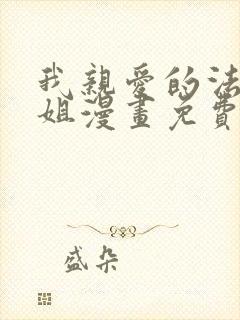 我親愛的法
姐漫畫免費
盛朵